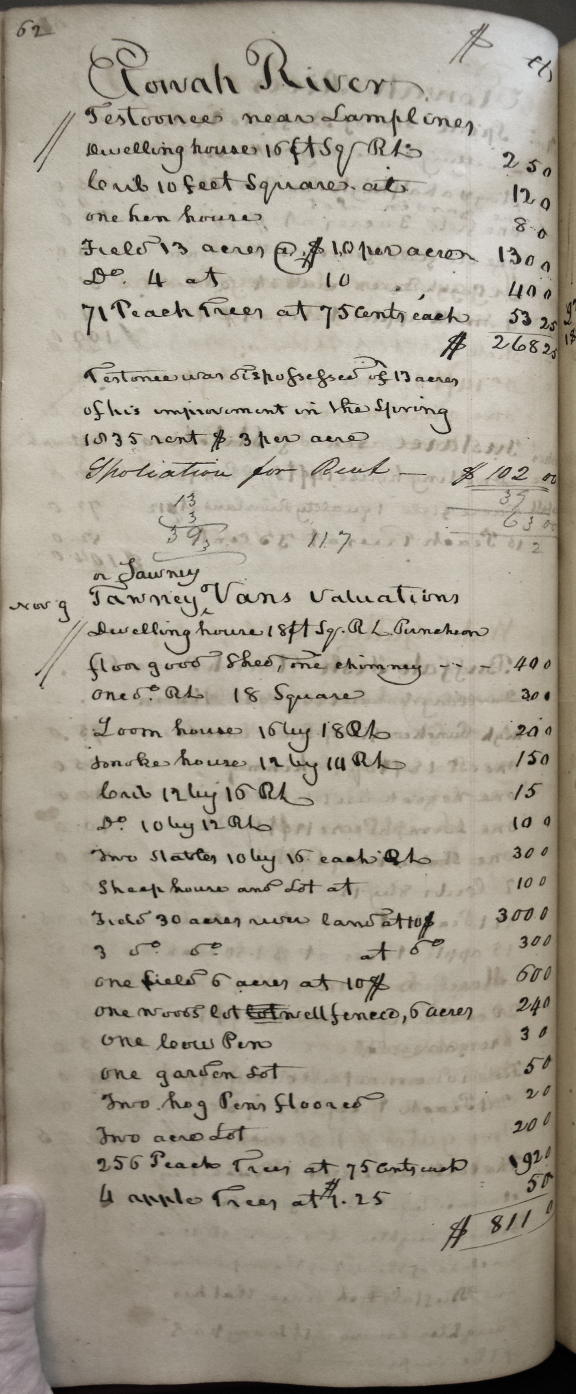 62
$ cts
Etowah River
Testoonee near Lamplines
Dwelling house 16 ft Sqr R L 25 0
Crib 10 feet Square at 12 0
one hen house 8 0
Field 13 acres @ $ 10 per acre 130 0
Do. 4 at 10 40 0
71 Peach Trees at 75 Cents each 53 25
$ 268 25
Testonee was dispossessed of 13 acres
of his improvement in the Spring
1835 rent $ 3 per acre
Spoliation for Rent — $ 102 00
13 39
3 63 00
39 117 2
3
or Sawney
Nov 9 Tawney Vans Valuations
Dwelling house 18 ft Sq. R L Puncheon
floor good Shed, one chimney - - - 40 0
one do. RL 18 Square 30
Loom house 16 by 18 RL 20 0
Smoke house 12 by 14 RL 15 0
Crib 12 by 16 RL 15
Do. 10 by 12 RL 10 0
Two Stables 10 by 16 each RL 30 0
Sheep house and Lot at 10 0
Field 30 acres river land at 10 $ 300 0
3 do do at do 30 0
one field 6 acres at 10 $ 60 0
one woods lot well fenced, 6 acres 24 0
one Cow Pen 3 0
one garden Lot 5 0
Two hog Pens floored 2 0
Two acre Lot 20 0
256 Peach Trees at 75 Cents each 192 0
4 apple Trees at $ 1.25 5 0
$ 811 0